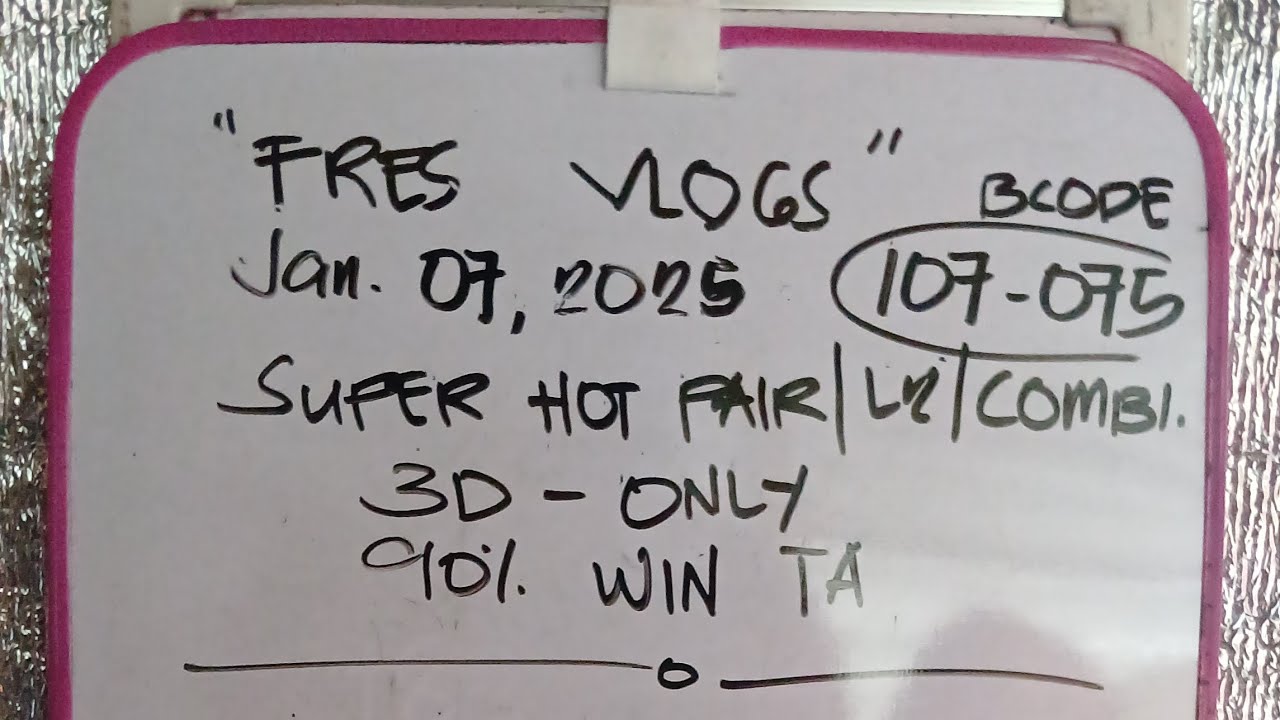 "FRES VLOGS"
BCODE
Jan. 07, 2025
107-075
SUPER HOT PAIR/L2/COMBI.
3D - ONLY
90% WIN TA